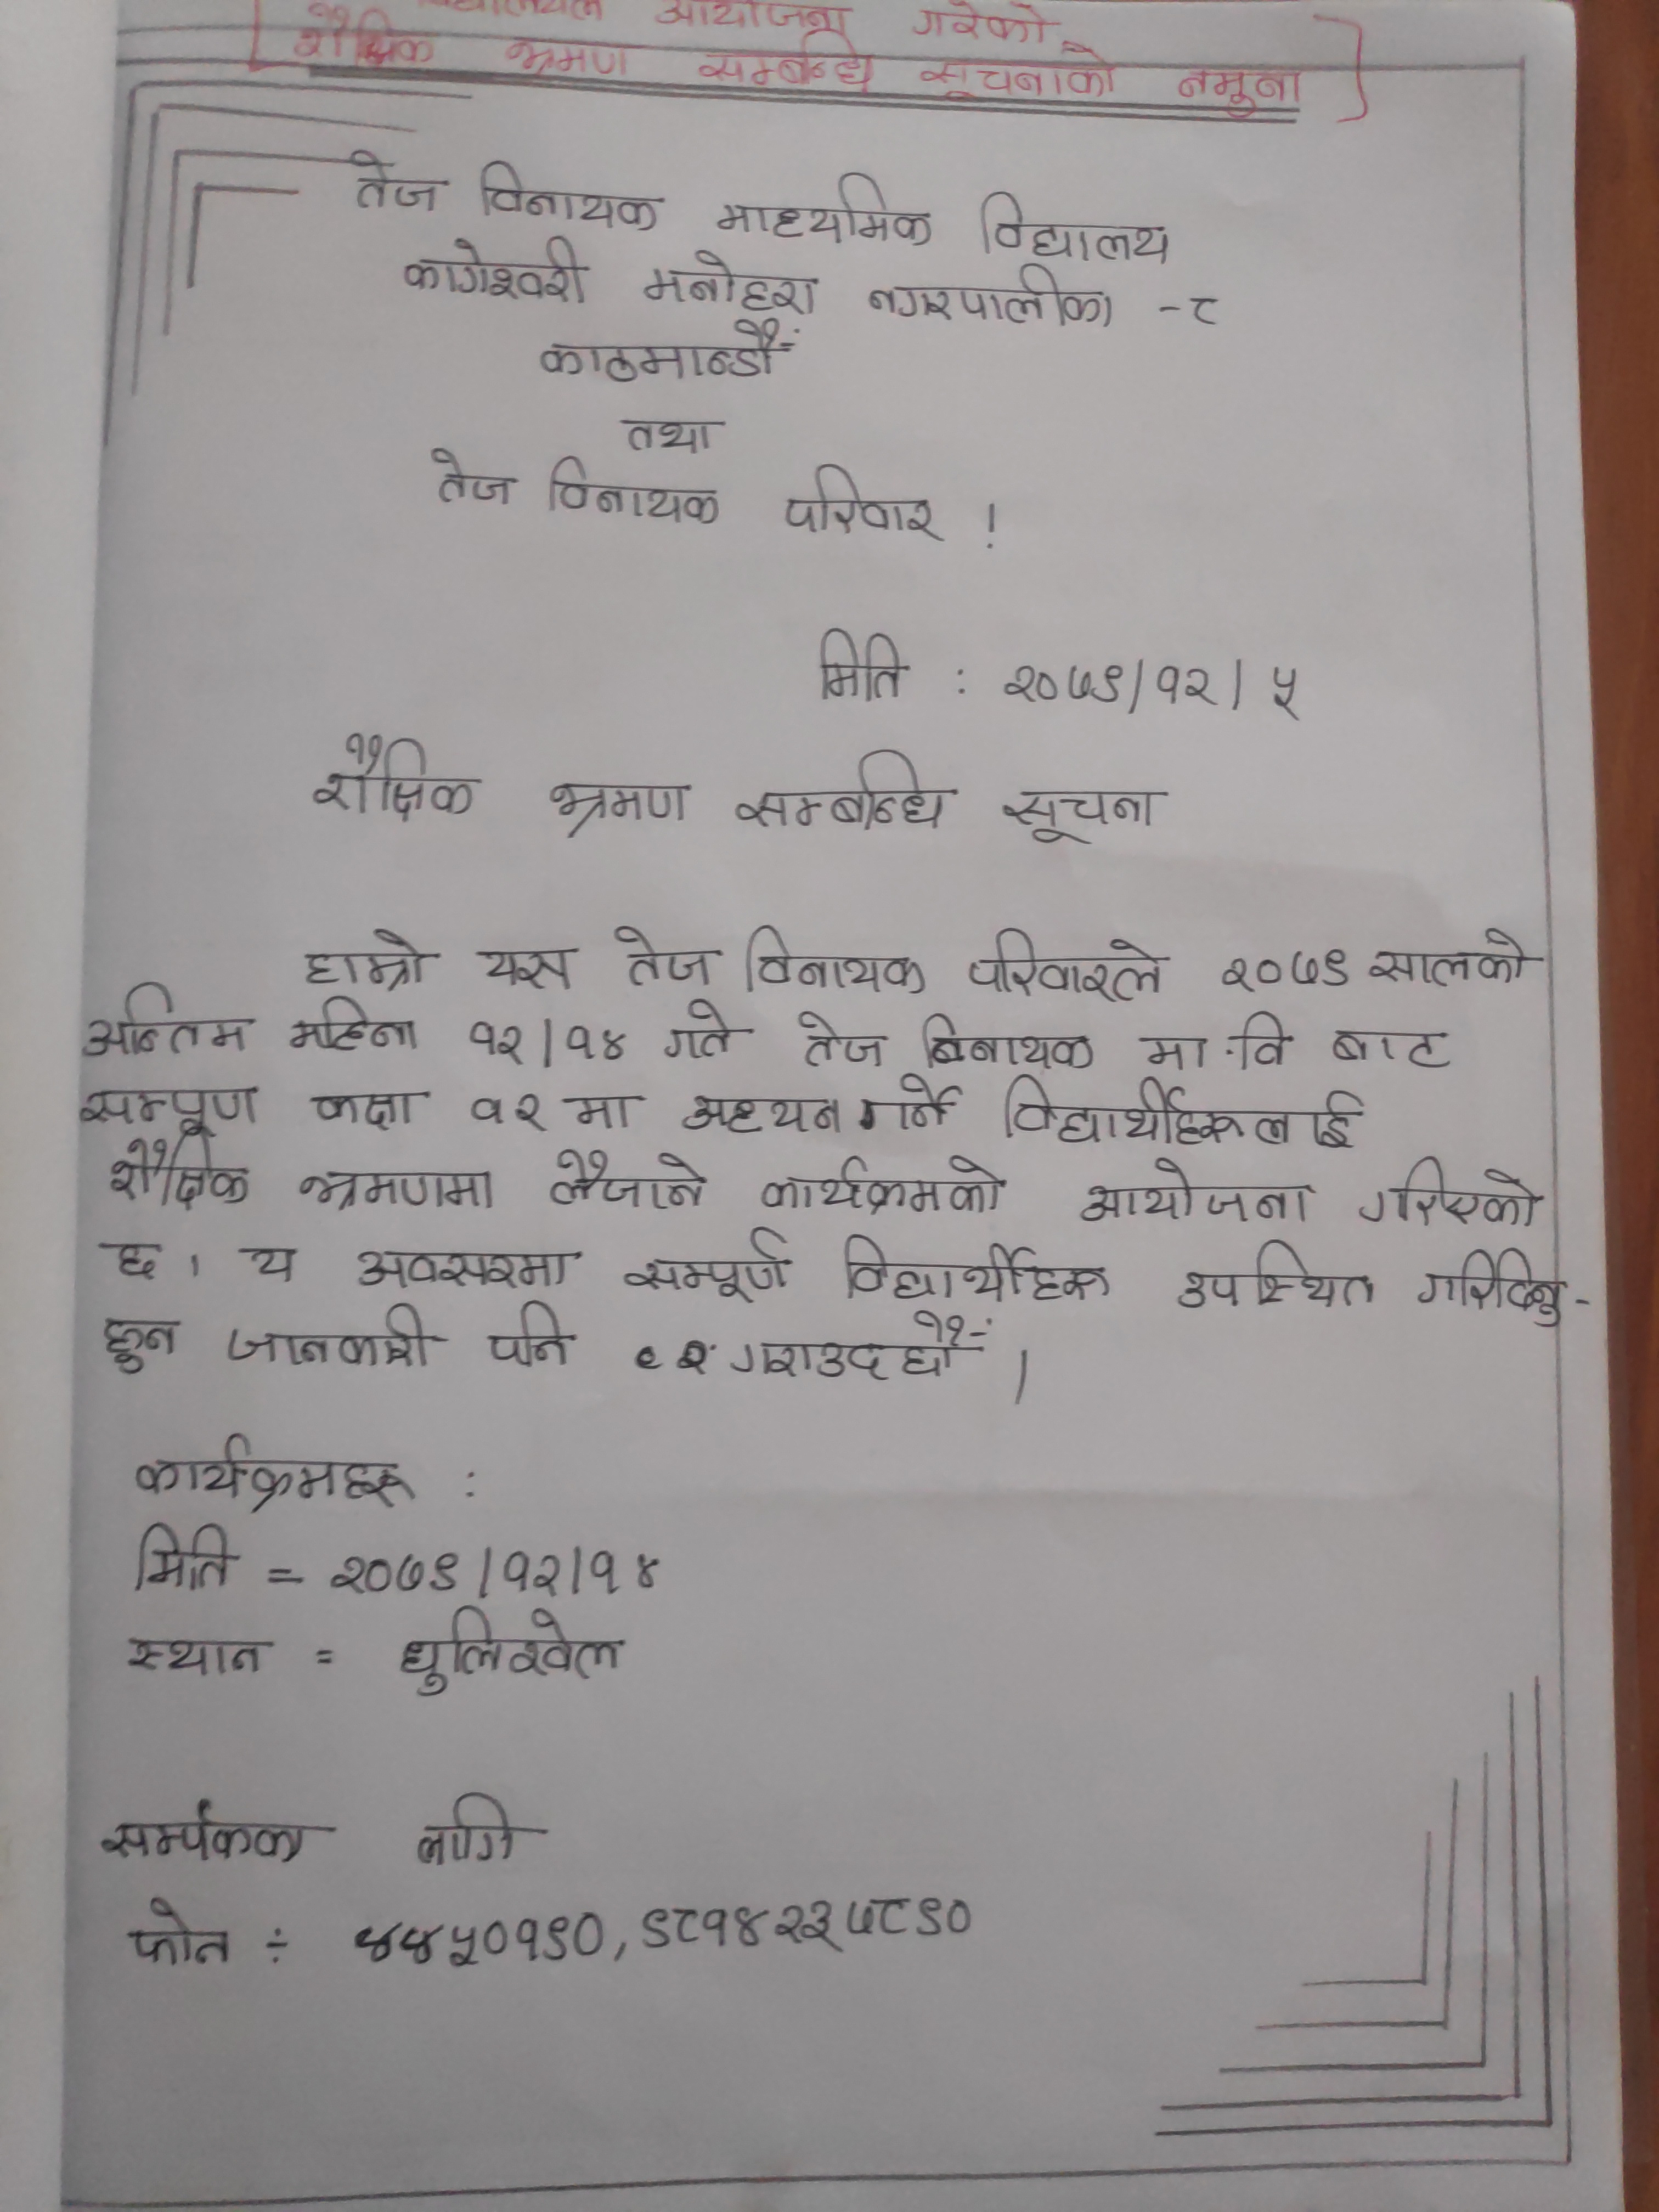 आयोजना गरेको
शैक्षिक भ्रमण सम्बन्धि सूचनाको नमुना
तेज विनायक माध्यमिक विद्यालय
कागेश्वरी मनोहरा नगरपालीका -८
काठमान्डौं
तथा
तेज विनायक परिवार !
मिति : २०७९/१२/५
शैक्षिक भ्रमण सम्बन्धि सूचना
हाम्रो यस तेज विनायक परिवारले २०७९ सालको
अन्तिम महिना १२/१४ गते तेज विनायक मा.वि बाट
सम्पूण कक्षा १२ मा अध्यन गर्ने विद्यार्थीहरूलाई
शैक्षिक भ्रमणमा लैजाने कार्यक्रमको आयोजना गरिएको
छ। य अवसरमा सम्पूर्ण विद्यार्थीहरू उपस्थित गरिदिनु-
हुन जानकारी पनि गराउदछौं ।
कार्यक्रमहरू :
मिति = २०७९/१२/१४
स्थान = धुलिखेल
सर्म्पकका लागि
फोन ÷ ४४५०१९०, ९८१४२२३७८९०